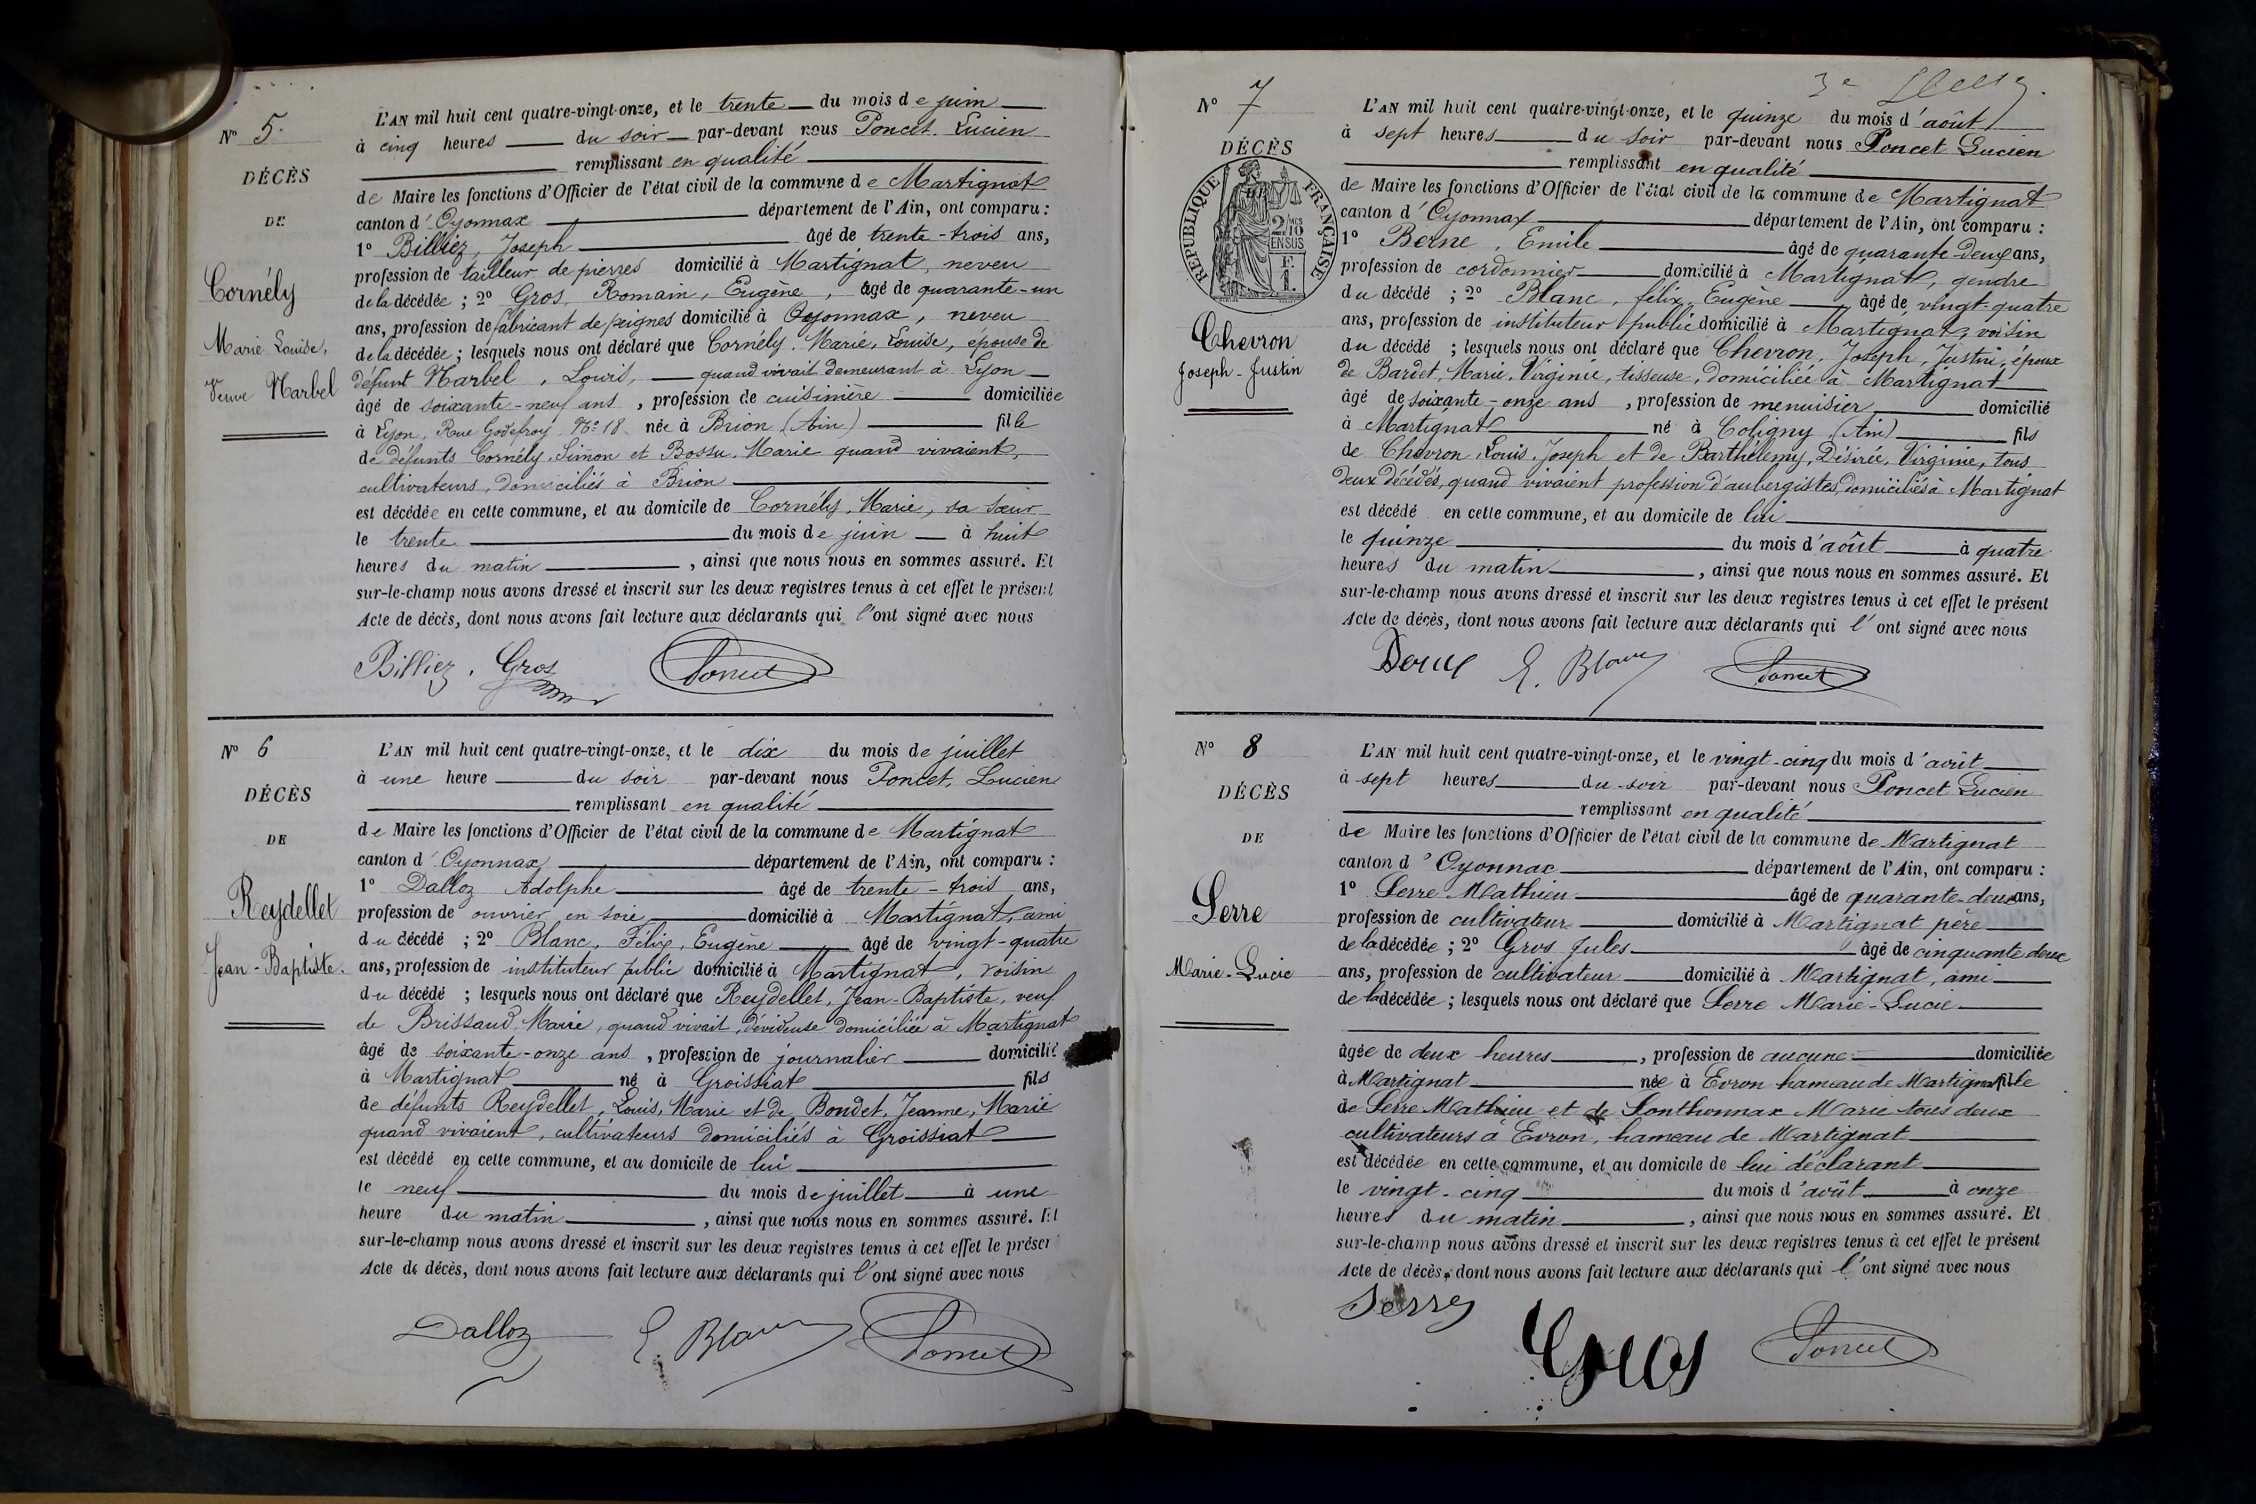 N° 5.
DÉCÈS
DE
Cornély
Marie Louise,
Veuve Marbel
L'AN mil huit cent quatre-vingt-onze, et le trente du mois de juin
à cinq heures du soir par-devant nous Poncet Lucien
remplissant en qualité
de Maire les fonctions d'Officier de l'état civil de la commune de Martignat
canton d'Oyonnax département de l'Ain, ont comparu :
1° Billiez, Joseph âgé de trente-trois ans,
profession de tailleur de pierres domicilié à Martignat, neveu
de la décédée ; 2° Gros, Romain, Eugène, âgé de quarante-un
ans, profession de fabricant de peignes domicilié à Oyonnax, neveu
de la décédée ; lesquels nous ont déclaré que Cornély, Marie, Louise, épouse de
défunt Marbel, Louis, quand vivait demeurant à Lyon
âgé de soixante-neuf ans, profession de cuisinière domiciliée
à Lyon, Rue Godefroy N° 18 née à Brion (Ain) fille
de défunts Cornély, Simon et Bossu, Marie quand vivaient,
cultivateurs, domiciliés à Brion
est décédée en cette commune, et au domicile de Cornély, Marie, sa sœur
le trente du mois de juin à huit
heures du matin, ainsi que nous nous en sommes assuré. Et
sur-le-champ nous avons dressé et inscrit sur les deux registres tenus à cet effet le présent
Acte de décès, dont nous avons fait lecture aux déclarants qui l'ont signé avec nous
Billiez. Gros Poncet
N° 6
DÉCÈS
DE
Reydellet
Jean-Baptiste.
L'AN mil huit cent quatre-vingt-onze, et le dix du mois de juillet
à une heure du soir par-devant nous Poncet, Lucien
remplissant en qualité
de Maire les fonctions d'Officier de l'état civil de la commune de Martignat
canton d'Oyonnax département de l'Ain, ont comparu :
1° Dalloz Adolphe âgé de trente-trois ans,
profession de ouvrier en soie domicilié à Martignat, ami
du décédé ; 2° Blanc, Félix, Eugène âgé de vingt-quatre
ans, profession de instituteur public domicilié à Martignat, voisin
du décédé ; lesquels nous ont déclaré que Reydellet, Jean-Baptiste, veuf
de Brissaud Marie, quand vivait, dévideuse domiciliée à Martignat
âgé de soixante-onze ans, profession de journalier domicilié
à Martignat né à Groissiat fils
de défunts Reydellet, Louis, Marie et de Bondet, Jeanne, Marie
quand vivaient, cultivateurs domiciliés à Groissiat
est décédé en cette commune, et au domicile de lui
le neuf du mois de juillet à une
heure du matin, ainsi que nous nous en sommes assuré. Et
sur-le-champ nous avons dressé et inscrit sur les deux registres tenus à cet effet le préser
Acte de décès, dont nous avons fait lecture aux déclarants qui l'ont signé avec nous
Dalloz E. Blanc Poncet
3e
N° 7
DÉCÈS
DE
RÉPUBLIQUE FRANÇAISE
2/10 EN SUS
Chevron
Joseph-Justin
L'AN mil huit cent quatre-vingt-onze, et le quinze du mois d'août
à sept heures du soir par-devant nous Poncet Lucien
remplissant en qualité
de Maire les fonctions d'Officier de l'état civil de la commune de Martignat
canton d'Oyonnax département de l'Ain, ont comparu :
1° Berne, Emile âgé de quarante-deux ans,
profession de cordonnier domicilié à Martignat, gendre
du décédé ; 2° Blanc, félix, Eugène âgé de vingt-quatre
ans, profession de instituteur public domicilié à Martignat, voisin
du décédé ; lesquels nous ont déclaré que Chevron, Joseph, Justin, époux
de Bardet, Marie, Virginie, tisseuse, domiciliée à Martignat
âgé de soixante-onze ans, profession de menuisier domicilié
à Martignat né à Coligny (Ain) fils
de Chevron Louis, Joseph et de Barthélemy, Désirée, Virginie, tous
deux décédés, quand vivaient profession d'aubergistes, domiciliés à Martignat
est décédé en cette commune, et au domicile de lui
le quinze du mois d'août à quatre
heures du matin, ainsi que nous nous en sommes assuré. Et
sur-le-champ nous avons dressé et inscrit sur les deux registres tenus à cet effet le présent
Acte de décès, dont nous avons fait lecture aux déclarants qui l'ont signé avec nous
Berne E. Blanc Poncet
N° 8
DÉCÈS
DE
Serre
Marie-Lucie
L'AN mil huit cent quatre-vingt-onze, et le vingt-cinq du mois d'août
à sept heures du soir par-devant nous Poncet Lucien
remplissant en qualité
de Maire les fonctions d'Officier de l'état civil de la commune de Martignat
canton d'Oyonnax département de l'Ain, ont comparu :
1° Serre Mathieu âgé de quarante-deux ans,
profession de cultivateur domicilié à Martignat père
de la décédée ; 2° Gros Jules âgé de cinquante deux
ans, profession de cultivateur domicilié à Martignat, ami
de la décédée ; lesquels nous ont déclaré que Serre Marie-Lucie
âgée de deux heures, profession de aucune domiciliée
à Martignat née à Evron hameau de Martignat fille
de Serre Mathieu et de Lonthonnax Marie tous deux
cultivateurs à Evron, hameau de Martignat
est décédée en cette commune, et au domicile de lui déclarant
le vingt-cinq du mois d'août à onze
heures du matin, ainsi que nous nous en sommes assuré. Et
sur-le-champ nous avons dressé et inscrit sur les deux registres tenus à cet effet le présent
Acte de décès, dont nous avons fait lecture aux déclarants qui l'ont signé avec nous
Serre Gros Poncet